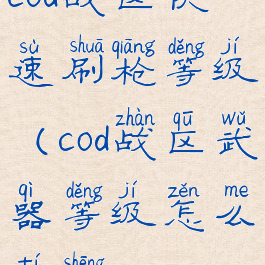 cod战区快
sù shuā qiāng děng jí
速刷枪等级
zhàn qū wǔ
(cod战区武
qì děng jí zěn me
器等级怎么
tí shēng